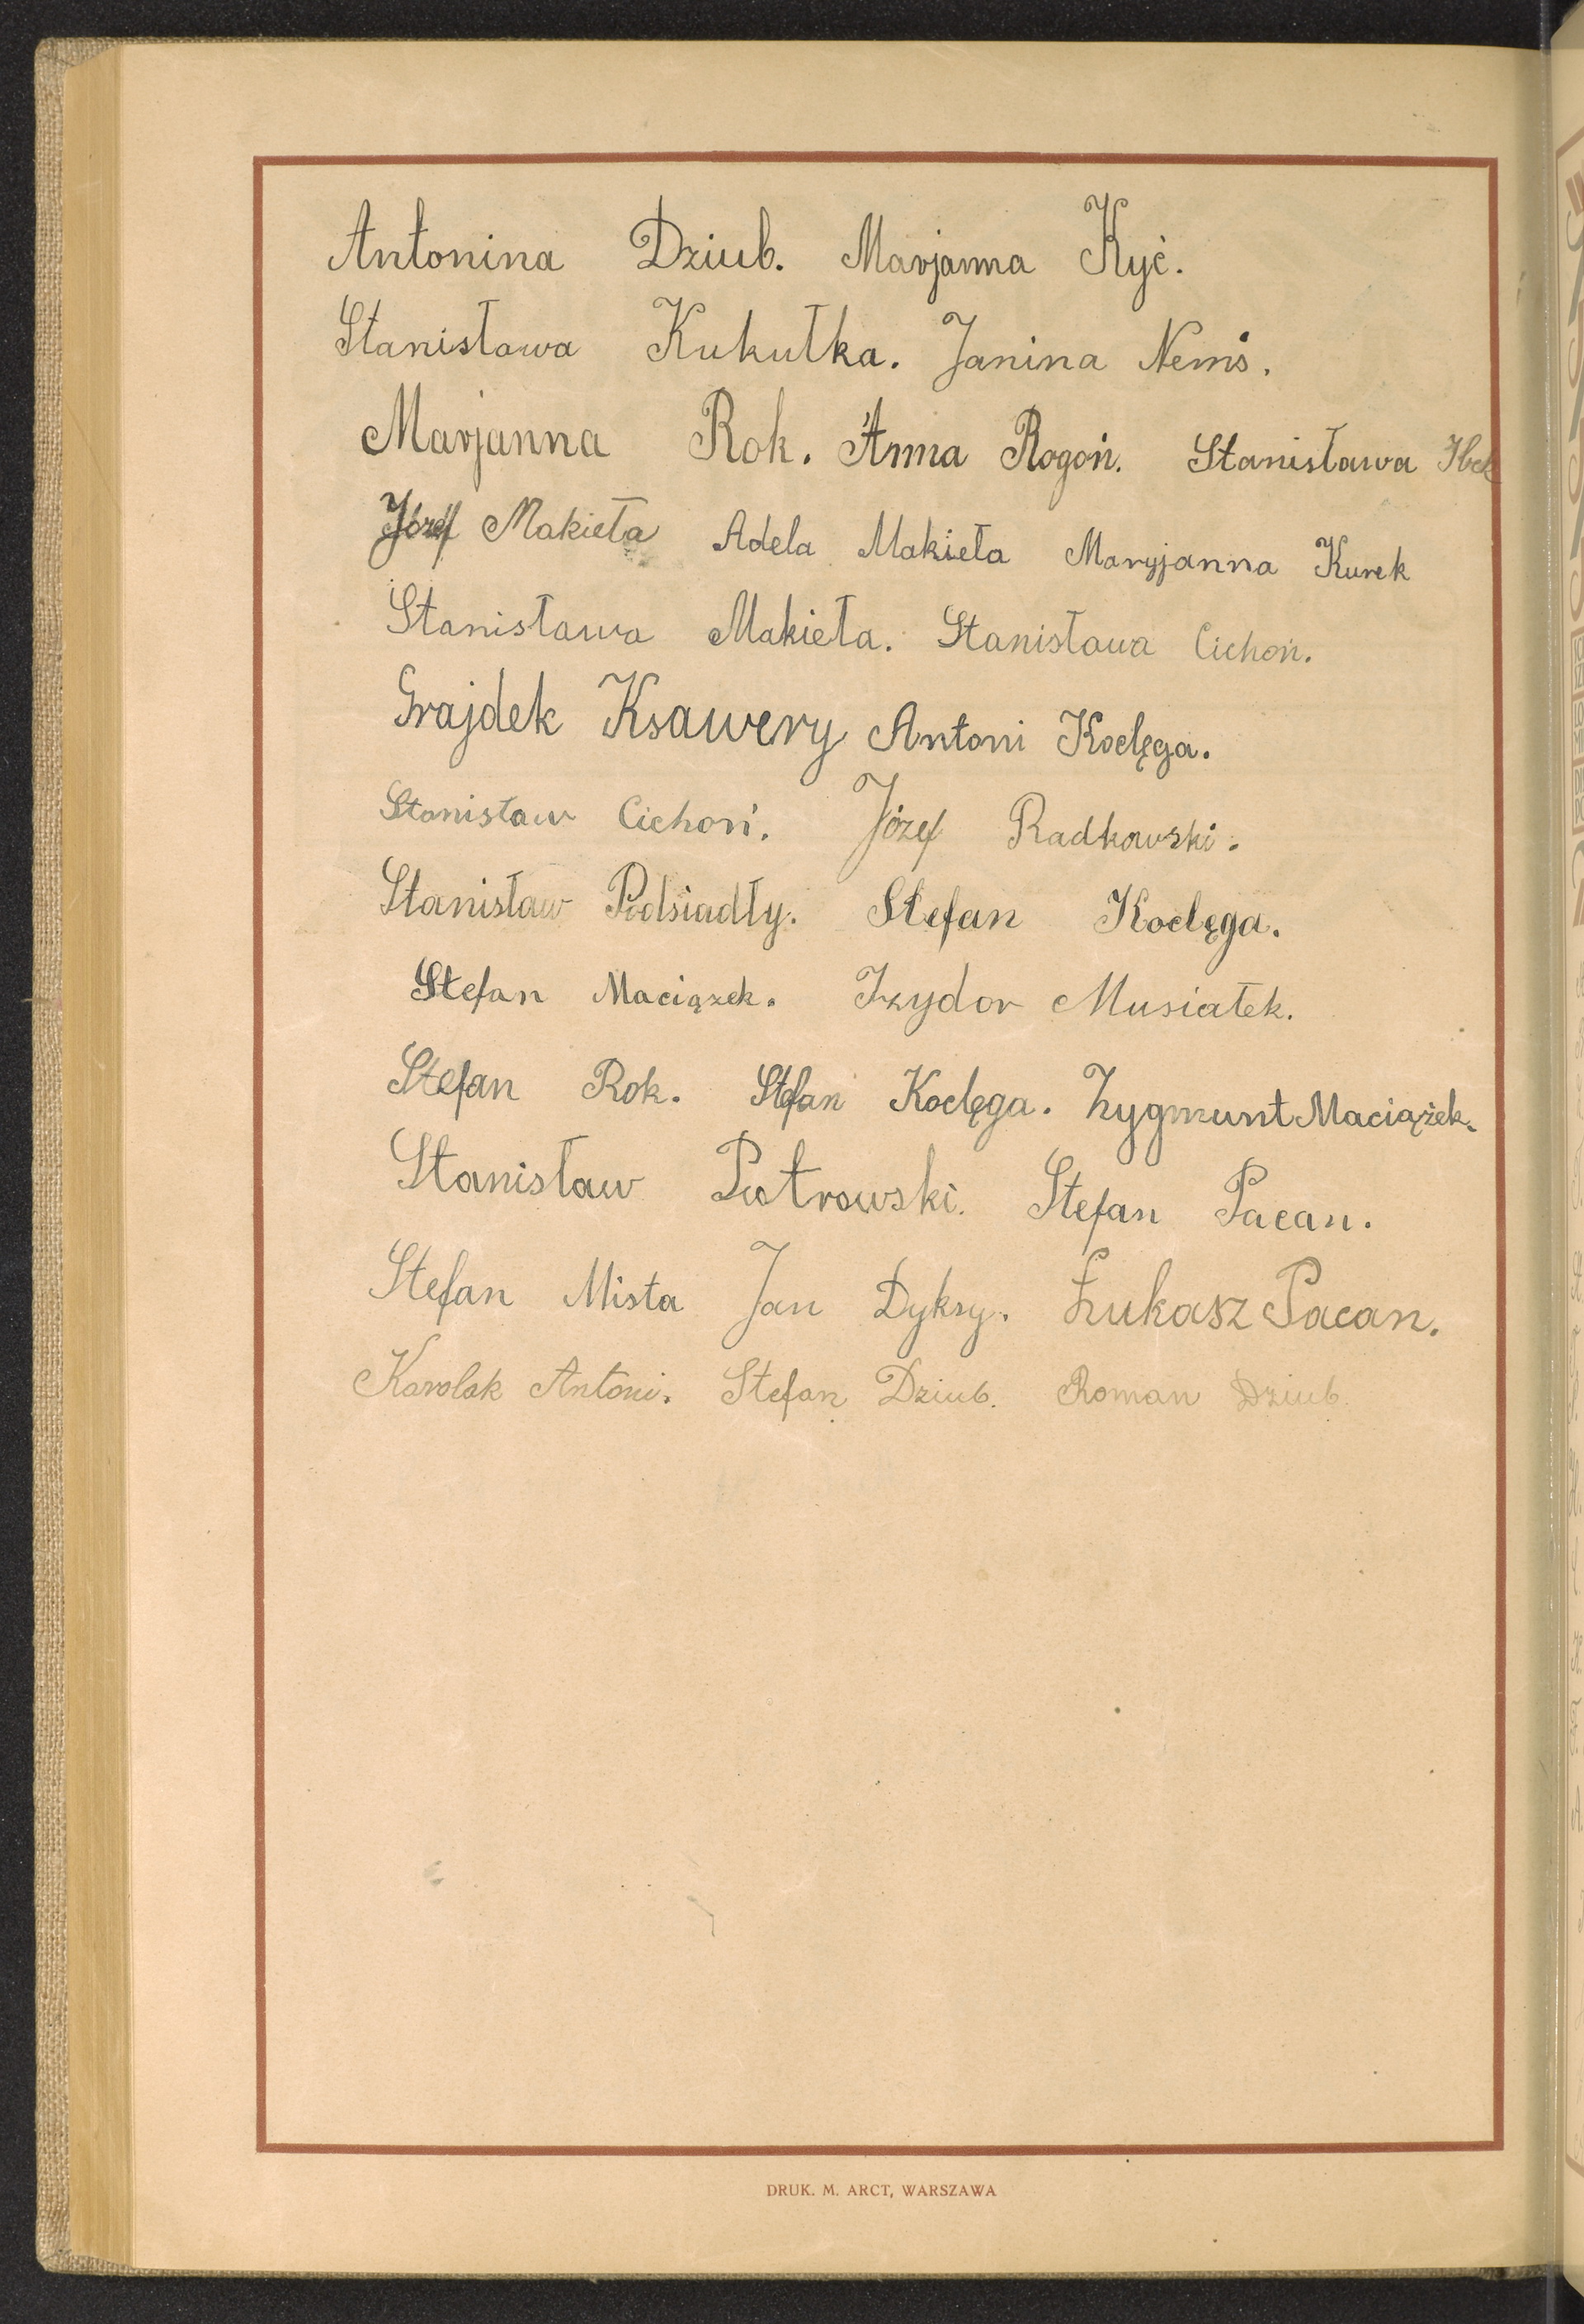 Antonina Dziub. Marjanna Kyć.
Stanisława Kukułka. Janina Nemś.
Marjanna Rok. Anna Rogoń. Stanisława
Józef Makieła Adela Makieła Maryjanna Kurek
Stanisława Makieła. Stanisława Cichoń.
Grajdek Ksawery Antoni Koclęga.
Stanisław Cichoń. Józef Radkowski.
Stanisław Podsiadły. Stefan Koclęga.
Stefan Maciązek. Izydor Musiałek.
Stefan Rok. Stefan Koclęga. Zygmunt Maciążek.
Stanisław Piotrowski. Stefan Pacan.
Stefan Mista Jan Dyksy. Łukasz Pacan.
Karolak Antoni. Stefan Dziub. Roman Dziub.
DRUK. M. ARCT, WARSZAWA